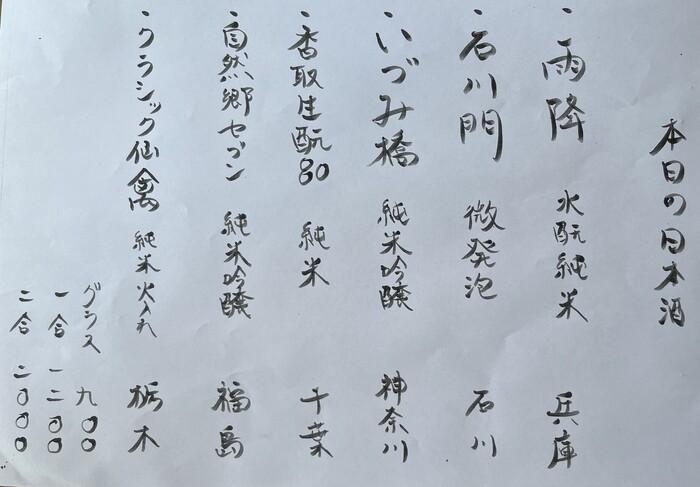 本日の日本酒
・雨降 水酛純米 兵庫
・石川門 微発泡 石川
・いづみ橋 純米吟醸 神奈川
・香取生酛80 純米 千葉
・自然郷セブン 純米吟醸 福島
・クラシック仙禽 純米火入れ 栃木
グラス 九〇〇
一合 一二〇〇
二合 二〇〇〇